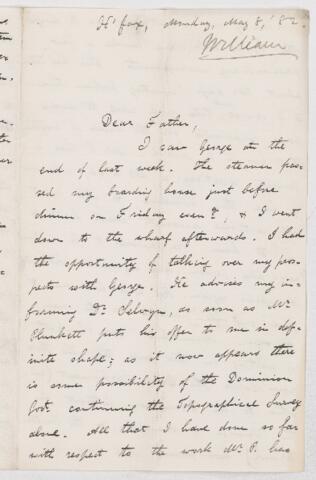 H'fax, Monday, May 8, '82.
William
Dear Father,
I saw George at the
end of last week. The steamer pas-
sed my boarding house just before
dinner on Friday even'g, & I went
down to the wharf afterwards. I had
the opportunity of talking over my pros-
pects with George. He advises my in-
forming Dr. Selwyn, as soon as Mr.
Plunkett puts his offer to me in def-
inite shape; as it now appears there
is some possibility of the Dominion
Govt. continuing the Topographical Survey
alone. All that I have done so far
with respect to the work Mr. P. has